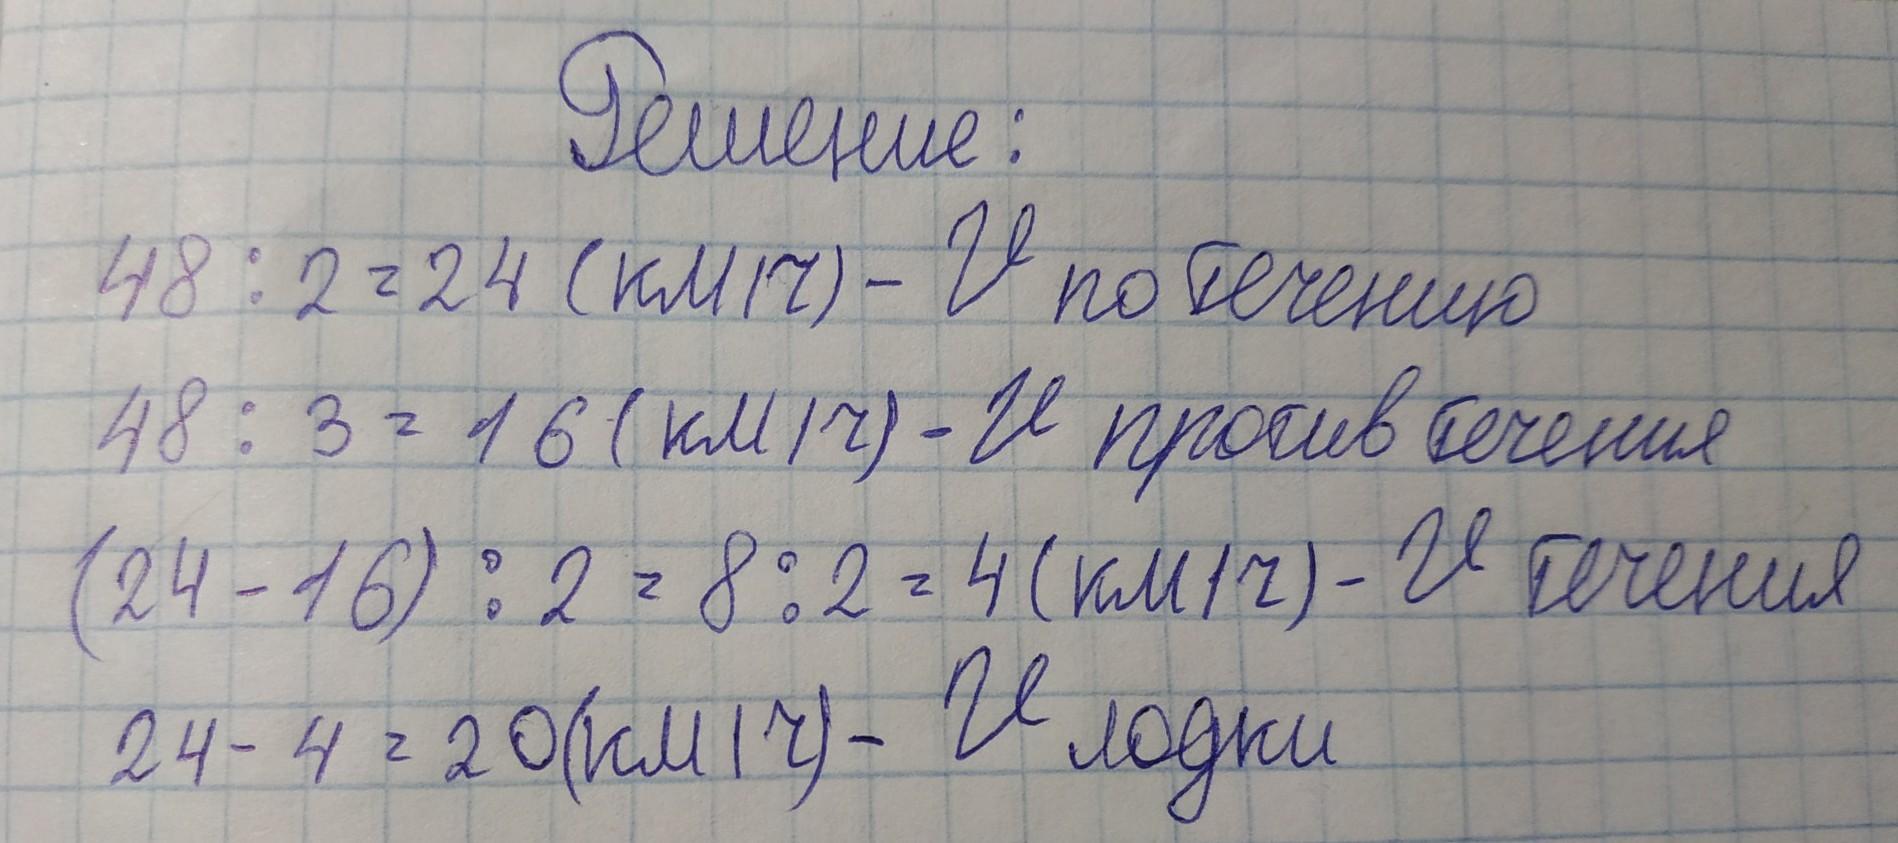 Решение:
48 : 2 = 24 (км/ч) - V по течению
48 : 3 = 16 (км/ч) - V против течения
(24 - 16) : 2 = 8 : 2 = 4 (км/ч) - V течения
24 - 4 = 20 (км/ч) - V лодки